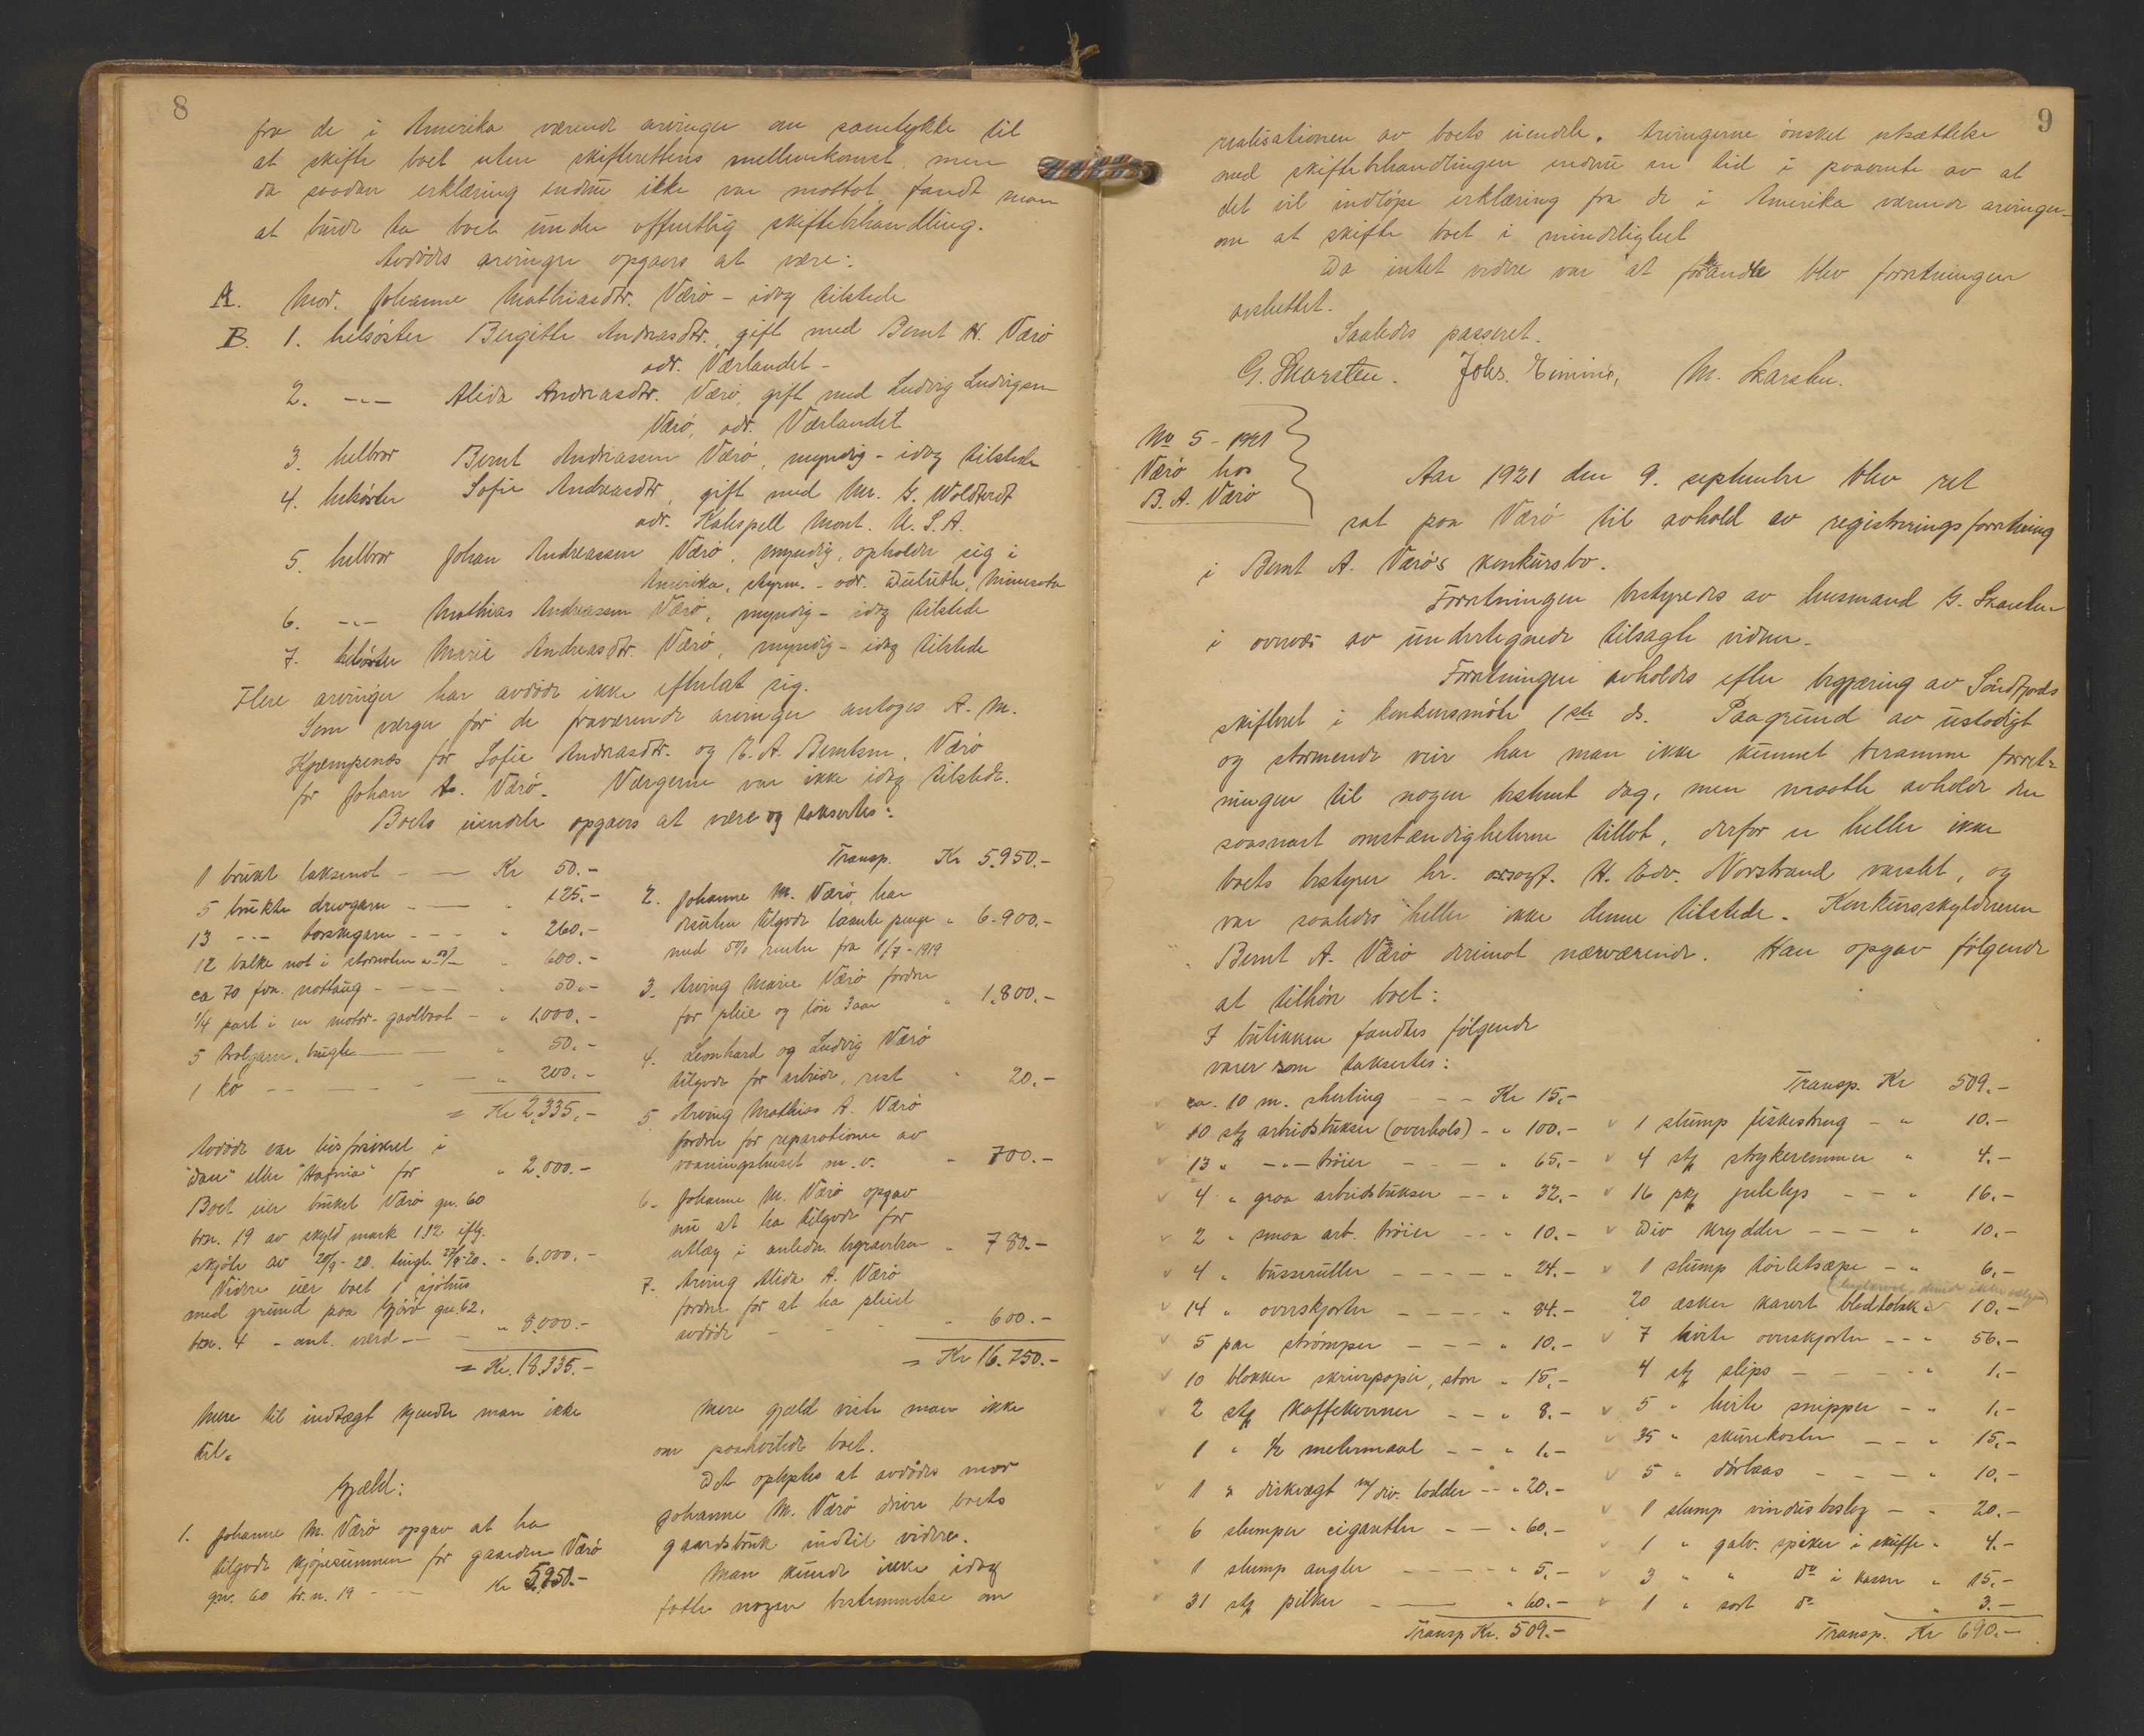 8
fra de i Amerika værende arvinger om samtykke til
at skifte boet uten skifterettens mellemkomst, men
da saadan erklæring endnu ikke var mottat, fandt man
at burde ta boet under offentlig skiftebehandling.
Avdødes arvinger opgaves at være:
A. Mor. Johanne Mathiasdtr. Værø - idag tilstede
B. 1. helsøster Bergithe Andreasdtr., gift med Bernt H. Værø
adr. Værlandet -
2. -"- Alida Andreasdtr. Værø, gift med Ludvig Ludvigsen
Værø, adr. Værlandet
3. helbror Bernt Andreassen Værø, myndig - idag tilstede
4. helsøster Sofie Andreasdtr., gift med Mr. G.
adr. Kalispell Mont. U.S.A.
5. helbror Johan Andreassen Værø, myndig, opholder sig i
Amerika, styrm. - adr. Duluth, Minesota
6. -"- Mathias Andreassen Værø, myndig - idag tilstede
7. helsøster Marie Andreasdtr. Værø, myndig - idag tilstede
Flere arvinger har avdøde ikke efterlat sig.
Som værger for de fraværende arvinger antoges A. M.
for Sofie Andreasdtr. og E. A. Berntsen, Værø
for Johan A. Værø. Værgerne var ikke idag tilstede.
Boets eiendele opgaves at være og taksertes:
1 brukt laksenot - — Kr 50.-
5 brukte drivgarn - — " 125.-
13 -"- torskegarn - - - " 260.-
12 balke not i storenoten a 50/- " 600.-
ca 70 fvn. nottaug - - - - " 50.-
1/4 part i en motor-gavlbaat - " 1,000.-
5 trolgarn, brugte — " 50.-
1 ko - - - - " 200.-
= Kr 2,335.-
Avdøde var livsforsikret i
"Dan" eller "Hafnia" for " 2,000.-
Boet eier bruket Værø gn. 60
brn. 19 av skyld mark 1.12 iflg.
skjøte av 20/9-20. tingl. 27/9-20. - 6,000.-
Videre eier boet 1 sjøhus
med grund paa gn. 62.
brn. 4 - ant. værd — " 8,000.-
= Kr. 18,335.-
Mere til indtægt kjendte man ikke
til.
Gjæld:
1. Johanne M. Værø opgav at ha
tilgode kjøpesummen for gaarden Værø
gn. 60 br.n. 19 - — Kr 5950.-
Transp. Kr 5.950.-
2. Johanne M. Værø har
desuten tilgode laante penge " 6.900.-
med 5% renter fra 1/7-1919
3. Arving Marie Værø fordrer
for pleie og løn 3 aar " 1,800.-
4. Leonhard og Ludvig Værø
tilgode for arbeide, rest " 20.-
5. Arving Mathias A. Værø
fordrer for reparationer av
vaaningshuset m.v. " 700.-
6. Johanne M. Værø opgav
nu at ha tilgode for
utlæg i anledn. begravelsen " 780.-
7. Arving Alida A. Værø
fordrer for at ha pleiet
avdøde - - - " 600.-
= Kr 16.750.-
Mere gjæld viste man ikke
om paahvilede boet.
Det oplystes at avdødes mor
Johanne M. Værø driver boets
gaardsbruk indtil videre.
Man kunde ikke idag
fatte nogen bestemmelse om
9
realisationen av boets eiendele. Arvingerne ønsket utsættelse
med skiftebehandlingen endnu en tid i paavente av at
det vil indløpe erklæring fra de i Amerika værende arvinger
om at skifte boet i mindelighet
Da intet videre var at forhandle blev forretningen
avsluttet.
Saaledes passeret.
G. Skarsten. Johs. M. Karsten.
No 5 - 1921
Værø hos
B. A. Værø
Aar 1921 den 9. september blev ret
sat paa Værø til avhold av registreringsforretning
i Bernt A. Værøs konkursbo.
Forretningen bestyredes av lensmand G. Skarsten
i overvær av undertegnede tilsagte vidner.
Forretningen avholdes efter begjæring av Søndfjords
skifteret i konkursmøte 1ste ds. Paagrund av ustadigt
og stormende veir har man ikke kunnet beramme forret-
ningen til nogen bestemt dag, men maatte avholde den
saasnart omstændigheterne tillot, derfor er heller ikke
boets bestyrer hr. orsagf. H. Edv. Norstrand varslet, og
var saaledes heller ikke denne tilstede. Konkursskyldneren
Bernt A. Værø derimot nærværende. Han opgav følgende
at tilhøre boet:
I butikken fandtes følgende
varer som taksertes:
ca. 10 m. sherting - - - Kr 15.-
10 stk arbeidsbukser (overhals) - " 100.-
13 " -"- trøier - - - " 65.-
4 " graa arbeidsbukser - - " 32.-
2 " smaa arb. trøier - - " 10.-
4 " busseruller - - - - " 24.-
14 " overskjorter - - - - " 84.-
5 par strømper - - - " 10.-
10 blokker skrivepapir, store " 15.-
2 stk kaffekverner - - " 8.-
1 " 1/2 metermaal - - " 1.-
1 " diskvegt m/ div. lodder - - " 20.-
6 slumper cigaretter - - " 60.-
1 slump angler - - - - " 5.-
31 stk pilker - — " 60.-
Transp Kr. 509.-
Transp. Kr 509.-
1 slump fiskesnrug - " 10.-
4 stk strykeremmer " 4.-
16 pk julelys - - " 16.-
Div krydder - - - " 10.-
1 slump toiletsæpe - " 6.-
20 æsker karvet bladtobak " 10.-
7 hvite overskjorter - - " 56.-
4 stk slips - - - - " 1.-
5 " hvite snipper - " 1.-
35 " skurekoster - - " 15.-
5 " dørlaas - - - " 10.-
1 slump vindusbeslag - " 20.-
1 " galv. spiker i skuffe " 4.-
3 " " do i kasser " 15.-
1 " sort do " 3.-
Transp. Kr 690.-